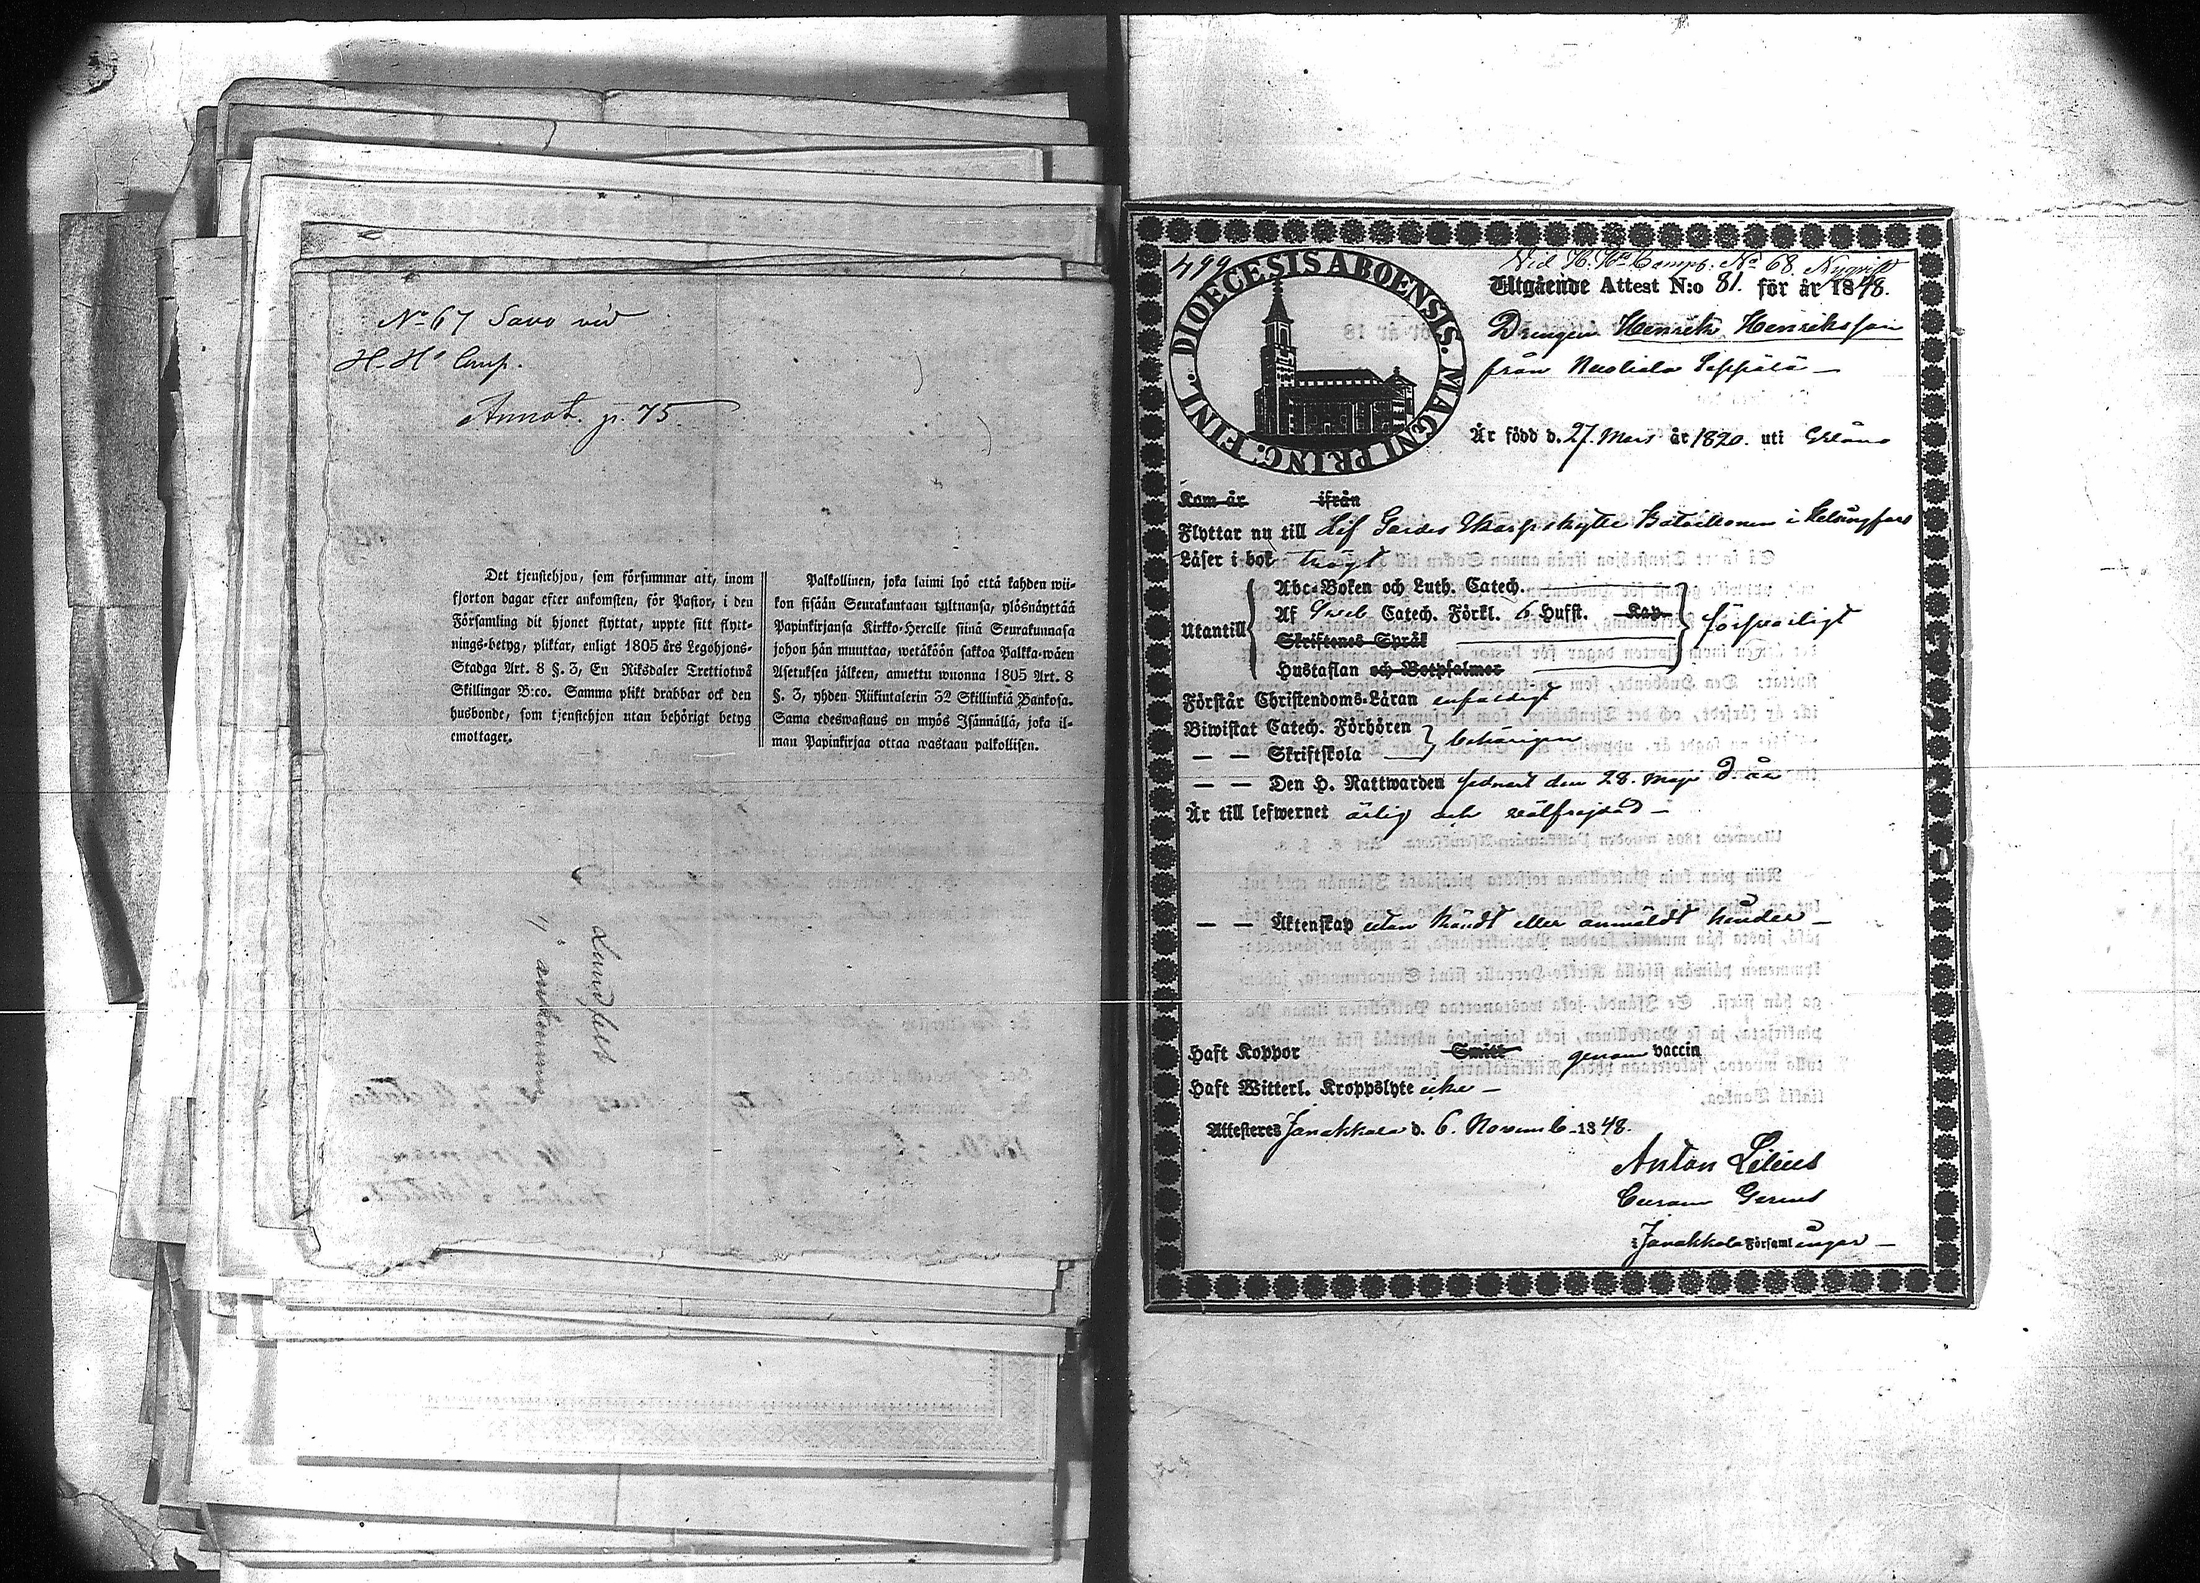 No 67 Savo vid
H. Hs Comp.
Annot. p. 75
Det tjenstehjon, som försummar att, inom
fjorton dagar efter ankomsten, för Pastor, i den
Församling dit hjonet flyttat, uppte sitt flytt-
nings-betyg, pliktar, enligt 1805 års Legohjons-
Stadga Art. 8 §. 3, En Riksdaler Trettiotwå
Skillingar B:co. Samma plikt drabbar ock den
husbonde, som tjenstehjon utan behörigt betyg
emottager.
Palkollinen, joka laimi lyö että kahden wii-
kon sisään Seurakuntaan tultuansa, ylösnäyttää
Papinkirjansa Kirkko-Herralle siinä Seurakunnasa
johon hän muuttaa, wetäköön sakkoa Palkka-wäen
Asetuksen jälkeen, annettu wuonna 1805 Art. 8
§. 3, yhden Riikintalerin 32 Skillinkiä Bankosa.
Sama edeswastaus on myös Isännällä, joka il-
man Papinkirjaa ottaa wastaan palkollisen.
499
DIOECESIS ABOENSIS. MAGNI PRINC. FINL.
Vid H. Hs Comp. No 68. Nyqvist
Utgående Attest N:o 81. för år 1848.
Drengen Henrik Henriksson
från Seppälä
Är född d. 27. Mars år 1820. uti
Kom år ifrån
Flyttar nu till Lif Gardes Skarpskytte Bataillonen i Helsingfors
Läser i bok trögt
Utantill
Abc-Boken och Luth. Catech.
Af Sveb. Catech. Förkl. 6 Hufst. Kap.
Skriftenes Språk
Hustaflan och Botpsalmer
försvarligt
Förstår Christendoms-Läran enfaldigt
Biwistat Catech. Förhören
— — Skriftskola
behörigen
— — Den H. Nattwarden sednast den 28. Maji d. år
Är till lefwernet ärlig och välfrejdad —
— — Äktenskap utan kändt eller anmäldt hinder —
Haft Koppor Smitt genom vaccin
Haft Witterl. Kroppslyte icke —
Attesteras Janakkala d. 6. Novemb. 1848.
Anton Lilius
Curam Gerens
i Janakkala Församlingar —